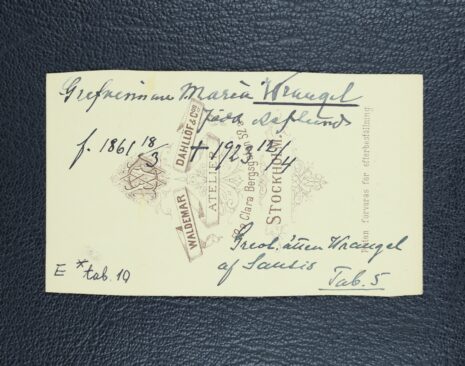 Grefvinnan Maria Wrangel
född Asplund
f. 1861 18/3 + 1923 12/4
WALDEMAR DAHLLÖF & Co
ATELIER
Clara Bergsg. 52
STOCKHOLM.
Plåten förvaras för efterbeställning.
Grevl. ätten Wrangel
af Sausis
Tab. 5
E * tab. 19